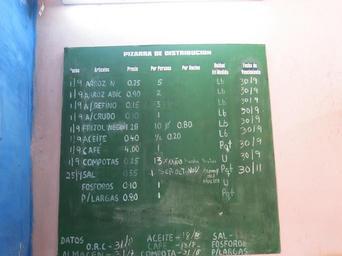 PIZARRA DE DISTRIBUCION
Desde Artículos Precio Por Persona Por Nucleo Unidad de Medida Fecha de Vencimiento
1/9 ARROZ N 0.25 5 Lb 30/9
1/9 ARROZ ADIC 0.90 2 Lb 30/9
1/9 A/REFINO 0.15 3 Lb 30/9
1/9 A/CRUDO 0.10 1 Lb 30/9
1/9 FRIZOL NEGRO 10 0.80 Lb 30/9
1/9 ACEITE 0.40 0.20 Lb 30/9
1/9 CAFE 4.00 1 Pqt 30/9
1/9 COMPOTAS 0.25 13 U 30/9
SAL 1 Pqt 30/11
FOSFOROS 1 U
P/LARGAS 1 Pqt
DATOS ACEITE SAL
O.R.C CAFE FOSFOROS
ALMACEN COMPOTA P/LARGAS